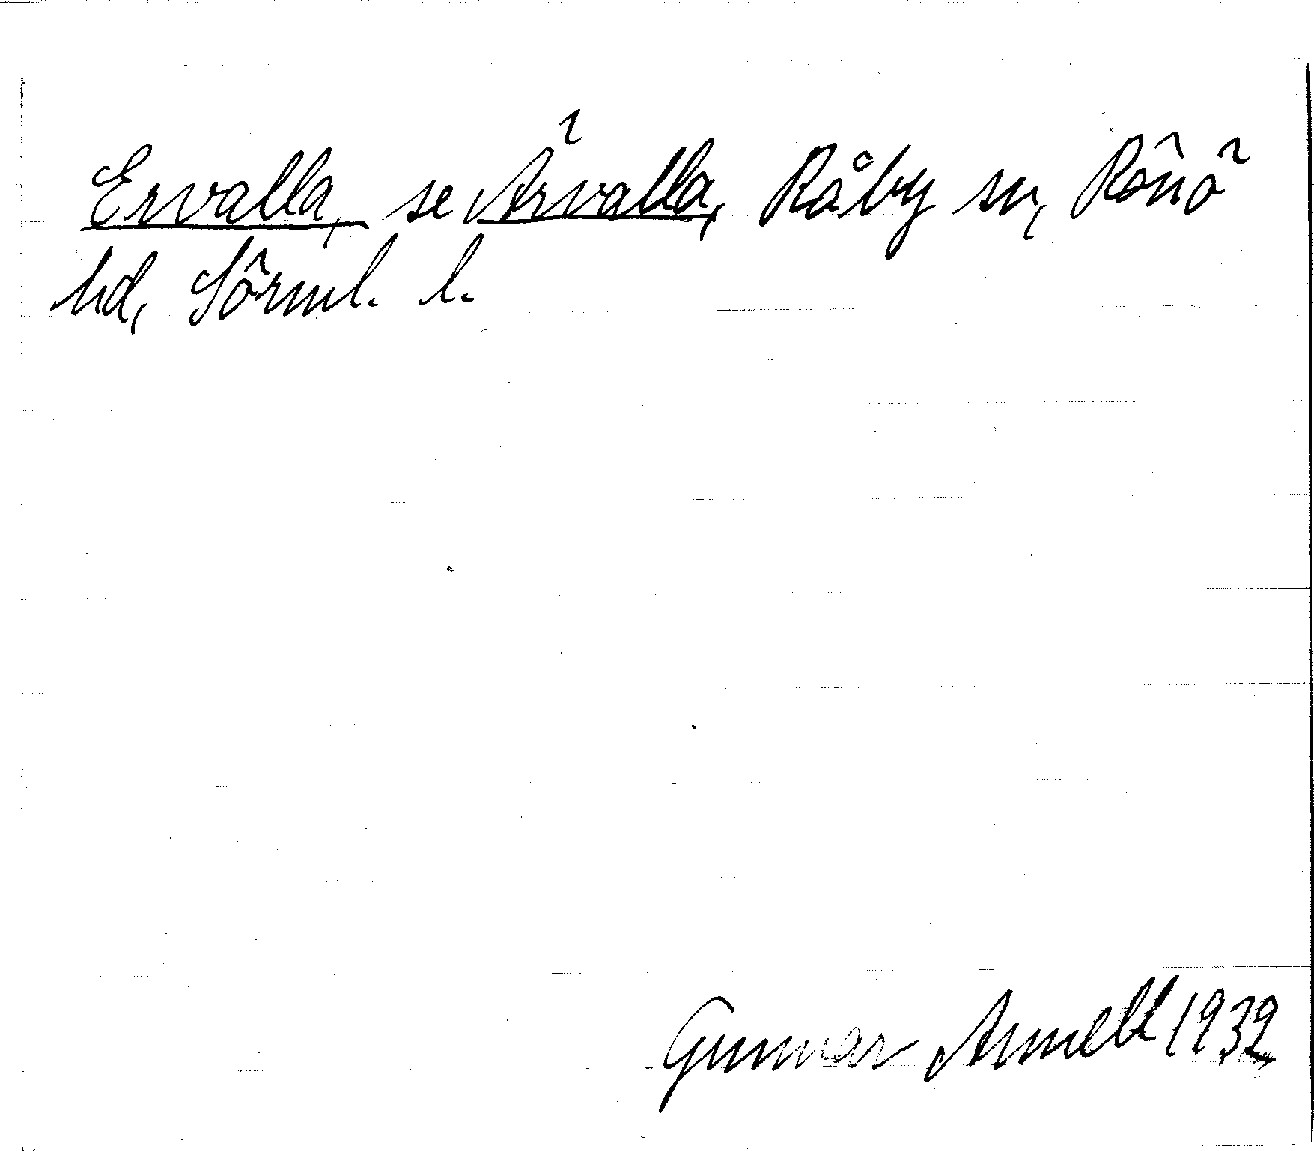 Ervalla, se Ärvalla, Råby sn, Rönö
hd, Sörml. l.
Gunnar Arnell 1932